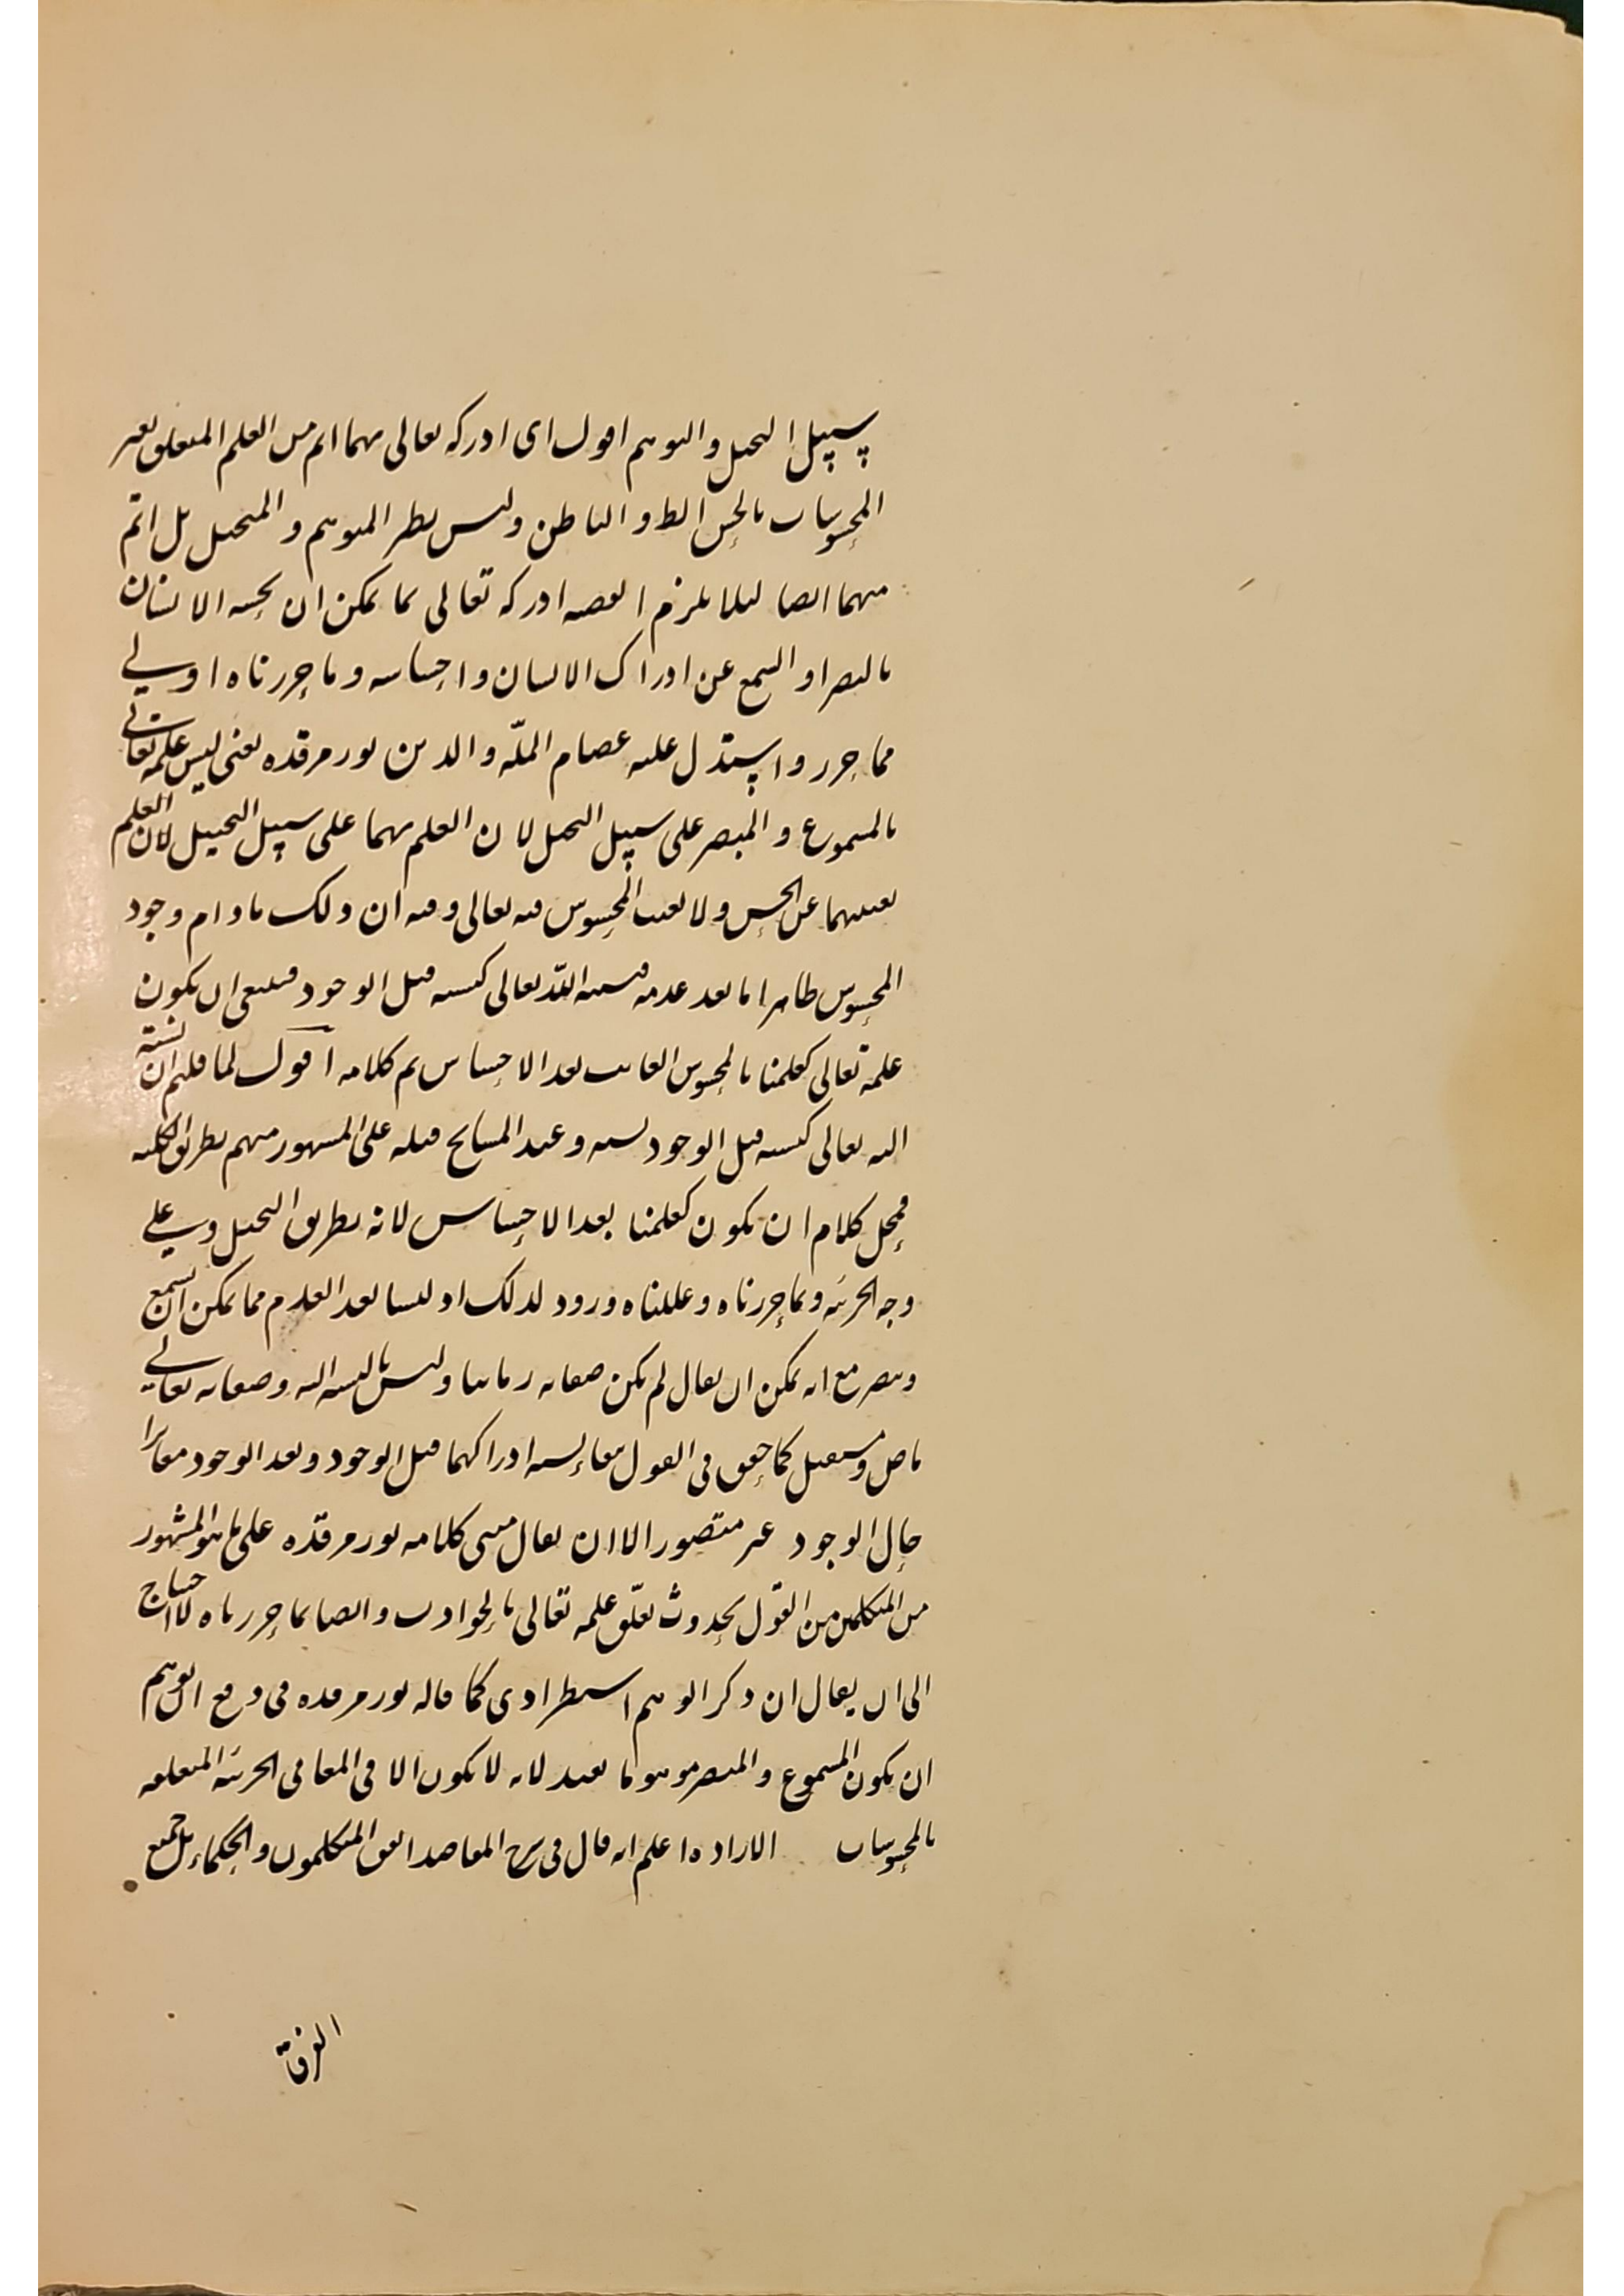 سبيل التخيل والتوهم اقول اى ادركه تعالى بهما اتم من العلم المتعلق بغير
المحسوسات بالحس الظ والباطن وليس بطر المتوهم والمتخيل بل اتم
منهما ايضا لئلا يلزم ادركه تعالى بما يمكن ان يحسه الانسان
بالبصر او السمع عن ادراك الانسان واحساسه وما حررناه اولى
مما حرر واستدل عليه عصام الملّه والدين نور مرقده يعنى ليس علمه تعالى
بالمسموع والمبصر على سبيل التخيل لان العلم بهما على سبيل التخييل لان العلم
بعينهما عن الحس ولا المحسوس منه تعالى وفيه ان ذلك مادام وجود
المحسوس ظاهرا ما بعد عدمه فنسبة اللّه تعالى كنسبته قبل الوجود فينبغى ان يكون
علمه تعالى كعلمنا بالمحسوس الغائب بعد الاحساس تم كلامه اقول لما قلتم ان نسبته
اليه تعالى كنسبته قبل الوجود وعند المشايخ قبله على المشهور منهم بطريق الكليه
فمحل كلام ان يكون كعلمنا بعد الاحساس لانه بطريق التخيل وهى على
وجه الجزئيه وبما حررناه وعللناه ورود لذلك اذ ليسا بعد العدم مما يمكن ان يسمع
ويبصر مع انه يمكن ان يقال لم يكن صفاته زمانيا وليس بالنسبة اليه وصفاته تعالى
ماض ومستقبل كما حقق فى القول ادراكهما قبل الوجود وبعد الوجود مغايرا
حال الوجود غير متصور الا ان يقال مبنى كلامه نور مرقده على ما هو المشهور
من المتكلمين من القول بحدوث تعلّق علمه تعالى بالحوادث وايضا بما حررناه لا احتياج
الى ان يقال ان ذكر الوهم استطرادى كما قاله نور مرقده فى دفع التوهم
ان يكون المسموع والمبصر موهوما بعيد لانه لا يكون الا فى المعانى الجزئيه المتعلقه
بالمحسوسات الاراده اعلم انه قال فى شرح المقاصد اتفق المتكلمون والحكماء بل جميع
الفرق